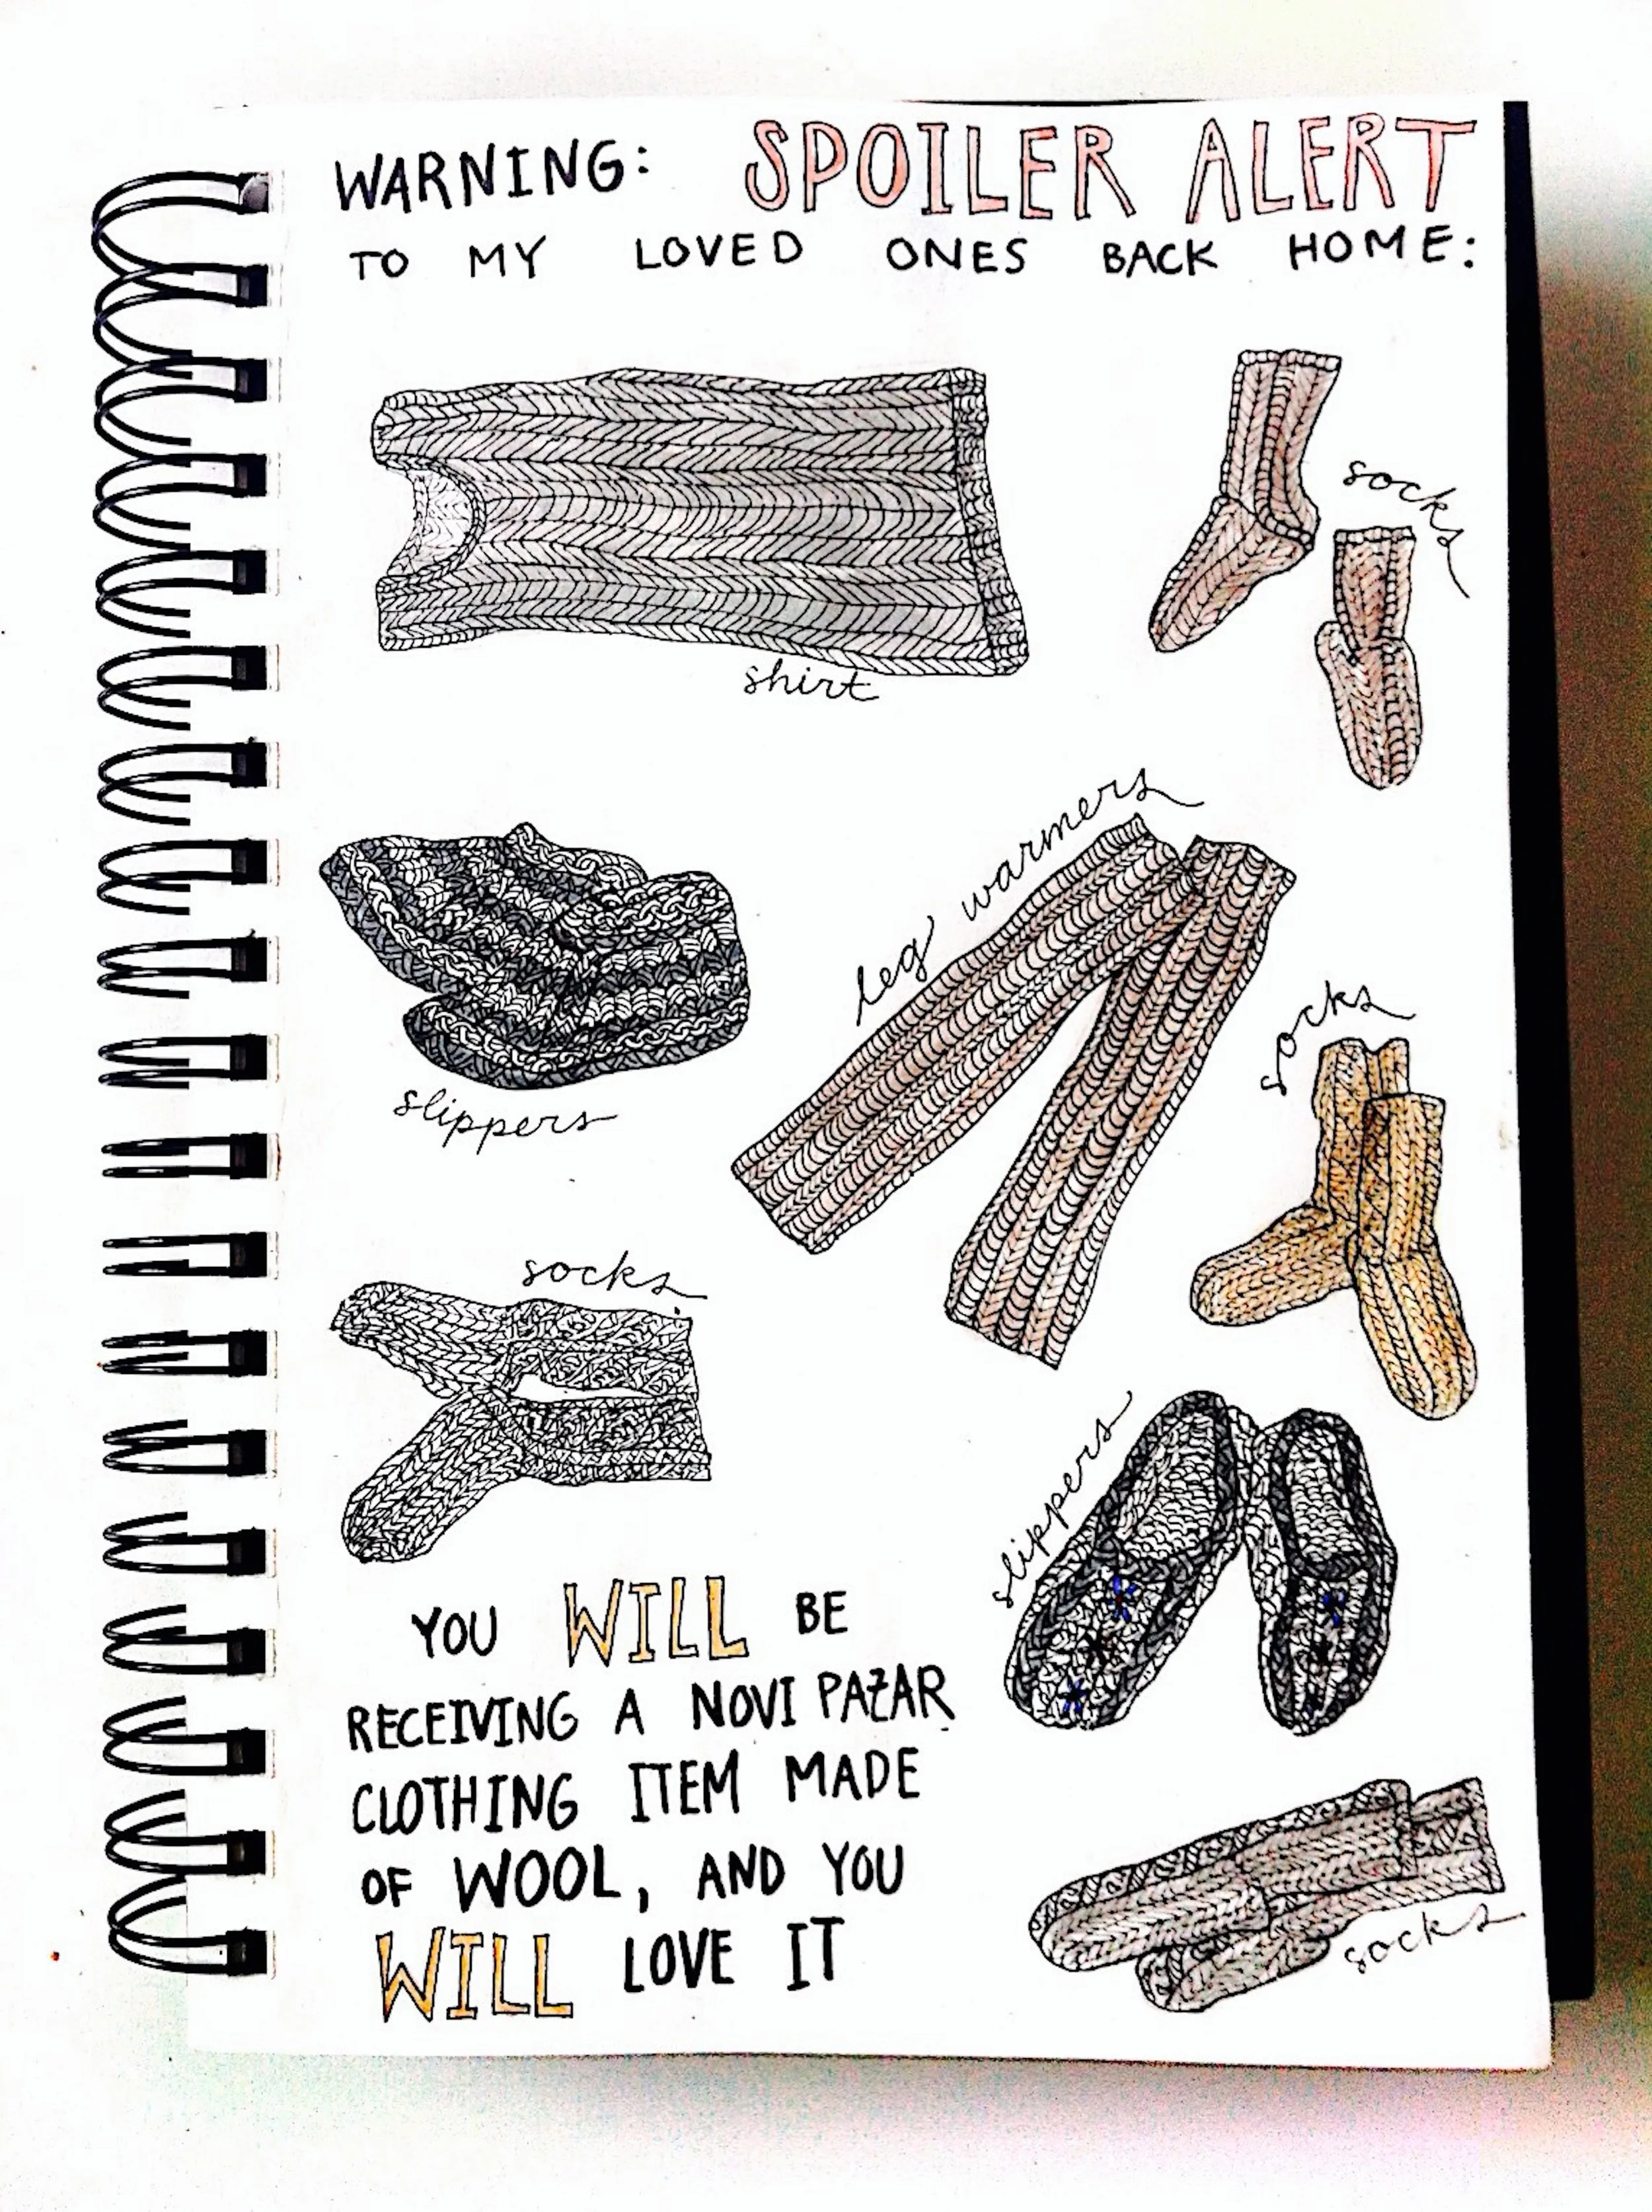 WARNING: SPOILER ALERT
TO MY LOVED ONES BACK HOME:
shirt
socks
leg warmers
slippers
socks
socks
slippers
YOU WILL BE
RECEIVING A NOVI PAZAR
CLOTHING ITEM MADE
OF WOOL, AND YOU
WILL LOVE IT
socks